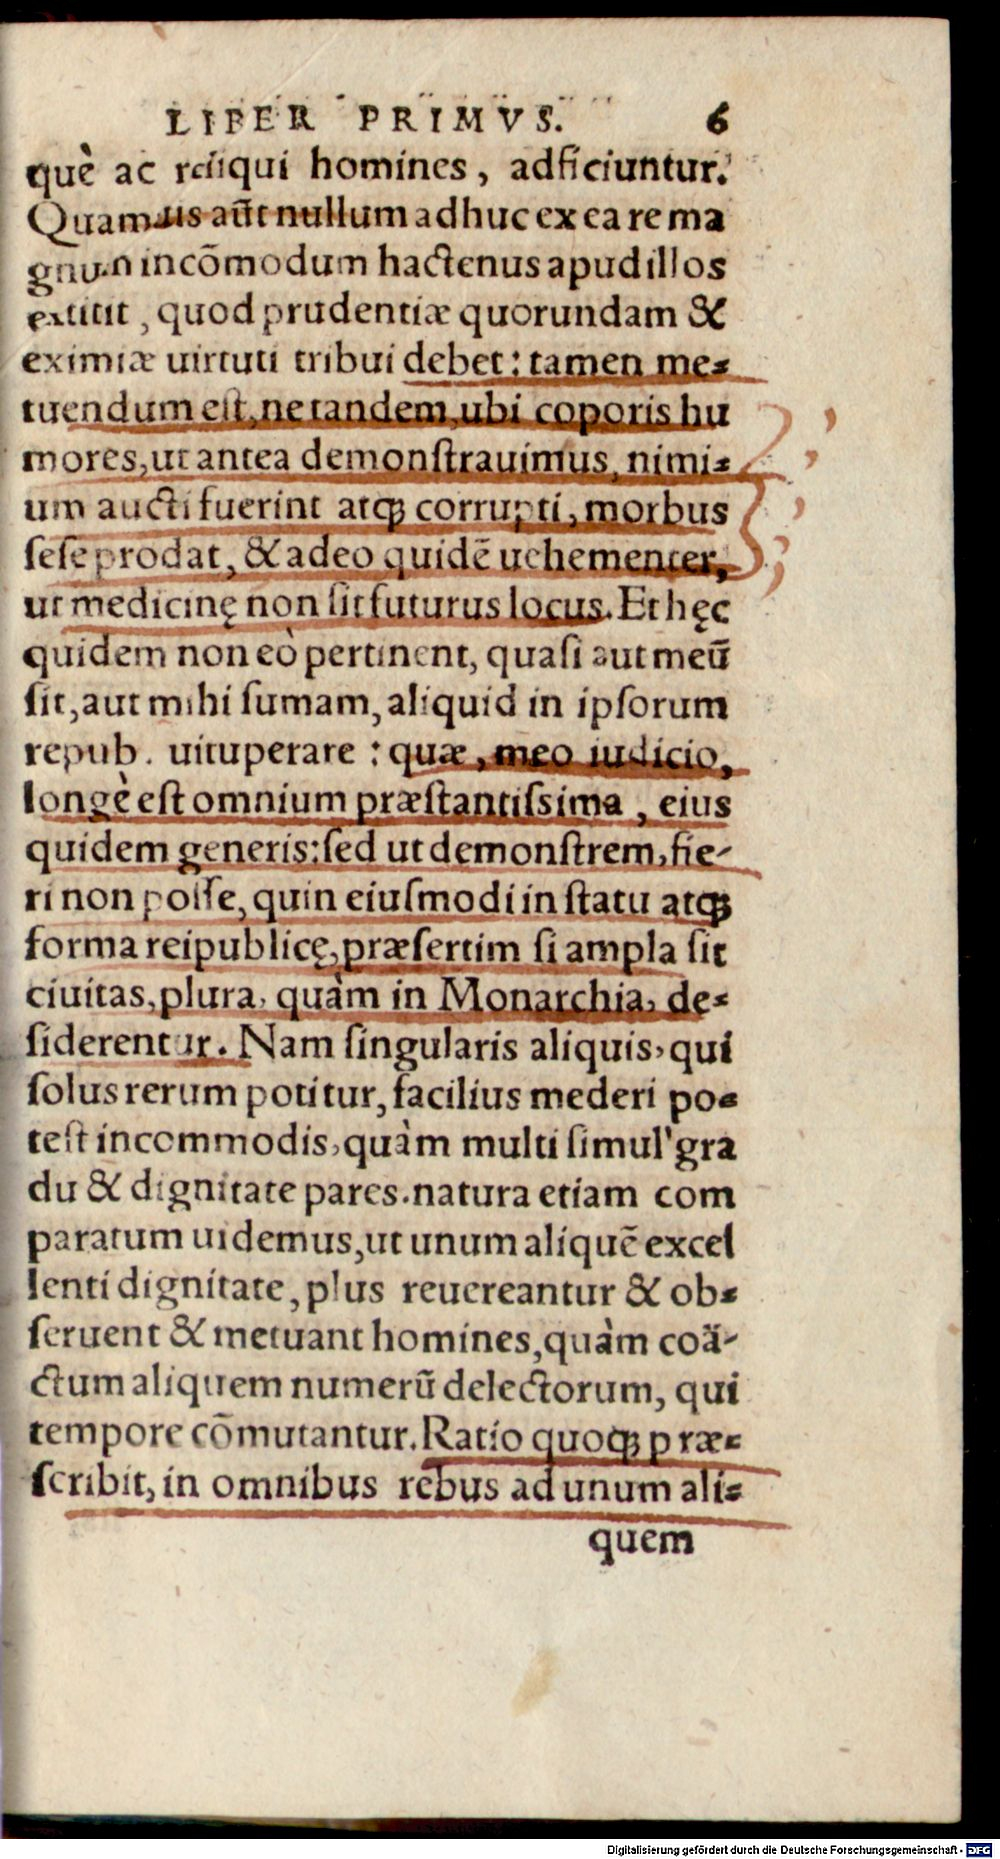 LIBER PRIMVS. 6
què ac reliqui homines, adficiuntur.
Quamuis aūt nullum adhuc ex ea re ma
gnum incōmodum hactenus apud illos
extitit, quod prudentiæ quorundam &
eximiæ uirtuti tribui debet: tamen me-
tuendum est, ne tandem, ubi coporis hu
mores, ut antea demonstrauimus, nimi-
um aucti fuerint atq; corrupti, morbus
sese prodat, & adeo quidē uehementer,
ut medicinę non sit futurus locus. Et hęc
quidem non eò pertinent, quasi aut meū
sit, aut mihi sumam, aliquid in ipsorum
repub. uituperare: quæ, meo iudicio,
longè est omnium præstantissima, eius
quidem generis: sed ut demonstrem, fie-
ri non posse, quin eiusmodi in statu atq;
forma reipublicę, præsertim si ampla sit
ciuitas, plura, quàm in Monarchia, de-
siderentur. Nam singularis aliquis, qui
solus rerum potitur, facilius mederi po-
test incommodis, quàm multi simul gra
du & dignitate pares. natura etiam com
paratum uidemus, ut unum aliquē excel
lenti dignitate, plus reuereantur & ob-
seruent & metuant homines, quàm coä-
ctum aliquem numerū delectorum, qui
tempore cōmutantur. Ratio quoq; præ-
scribit, in omnibus rebus ad unum ali-
quem
Digitalisierung gefördert durch die Deutsche Forschungsgemeinschaft - DFG